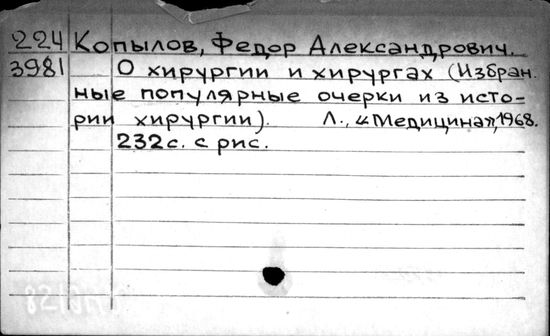 224 Копылов, Федор Александрович.
3981 О хирургии и хирургах (Избран.
ные популярные очерки из исто-
рии хирургии). Л., «Медицина», 1968.
232 с. с рис.